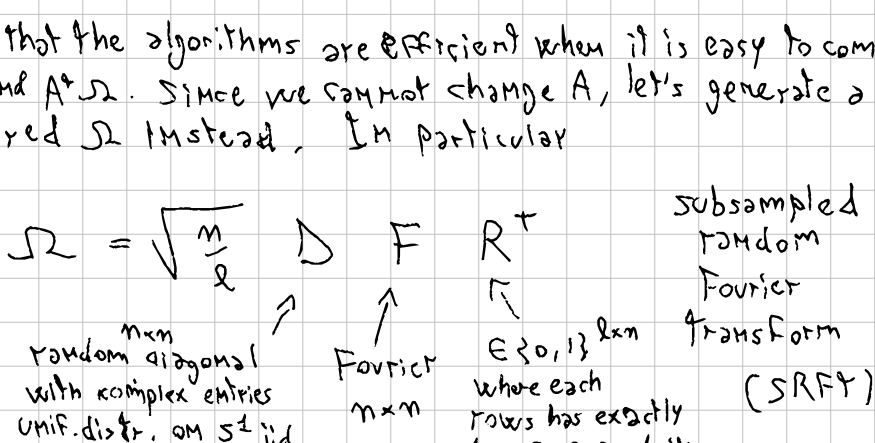 that the algorithms are efficient when it is easy to com
nd A*Ω. Since we cannot change A, let's generate a
red Ω instead. In particular
Ω = √(n/l) D F R^+
subsampled
random
Fourier
transform
(SRFT)
n×n
random diagonal
with komplex entries
unif. distr. on S^1 iid
Fourier
n×n
∈ {0,1}^{l×n}
where each
rows has exactly